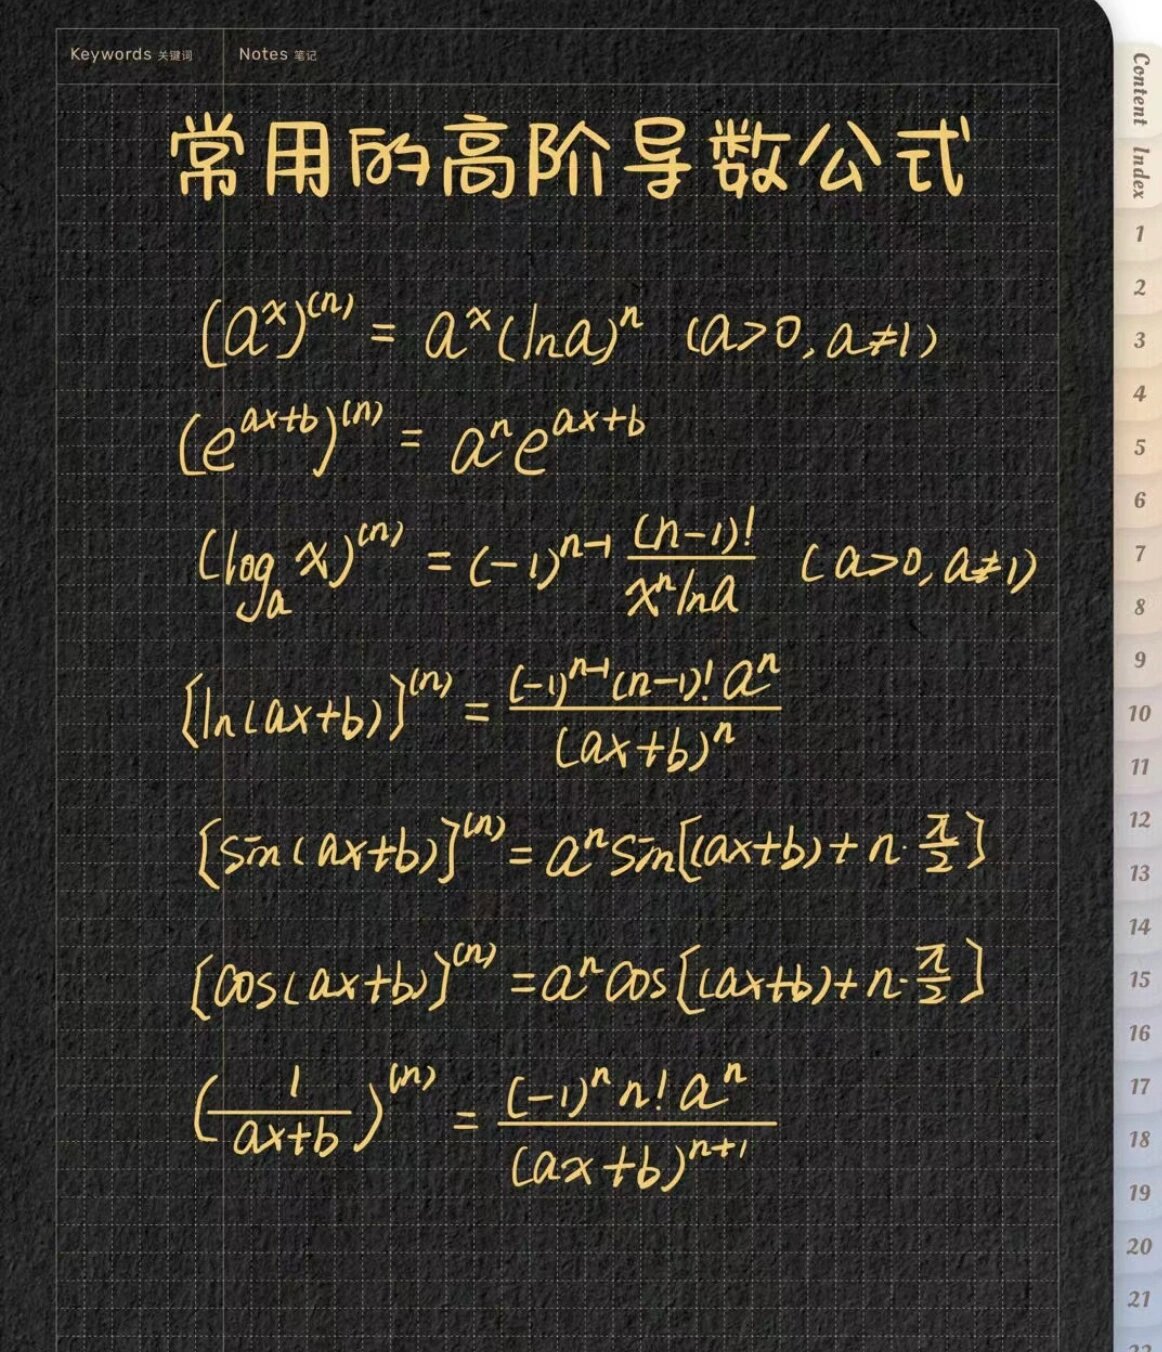 Keywords 关键词 Notes 笔记
常用的高阶导数公式
(a^x)^(n) = a^x (ln a)^n (a>0, a≠1)
(e^{ax+b})^(n) = a^n e^{ax+b}
(log_a x)^(n) = (-1)^{n-1} \frac{(n-1)!}{x^n ln a} (a>0, a≠1)
[ln(ax+b)]^(n) = \frac{(-1)^{n-1}(n-1)! a^n}{(ax+b)^n}
[sin(ax+b)]^(n) = a^n sin[(ax+b)+n·\frac{π}{2}]
[cos(ax+b)]^(n) = a^n cos[(ax+b)+n·\frac{π}{2}]
(\frac{1}{ax+b})^(n) = \frac{(-1)^n n! a^n}{(ax+b)^{n+1}}
Content
Index
1
2
3
4
5
6
7
8
9
10
11
12
13
14
15
16
17
18
19
20
21